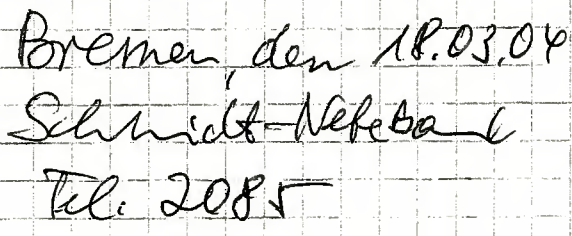 Bremen, den 18.03.04
Schmidt-
Tel. 2085